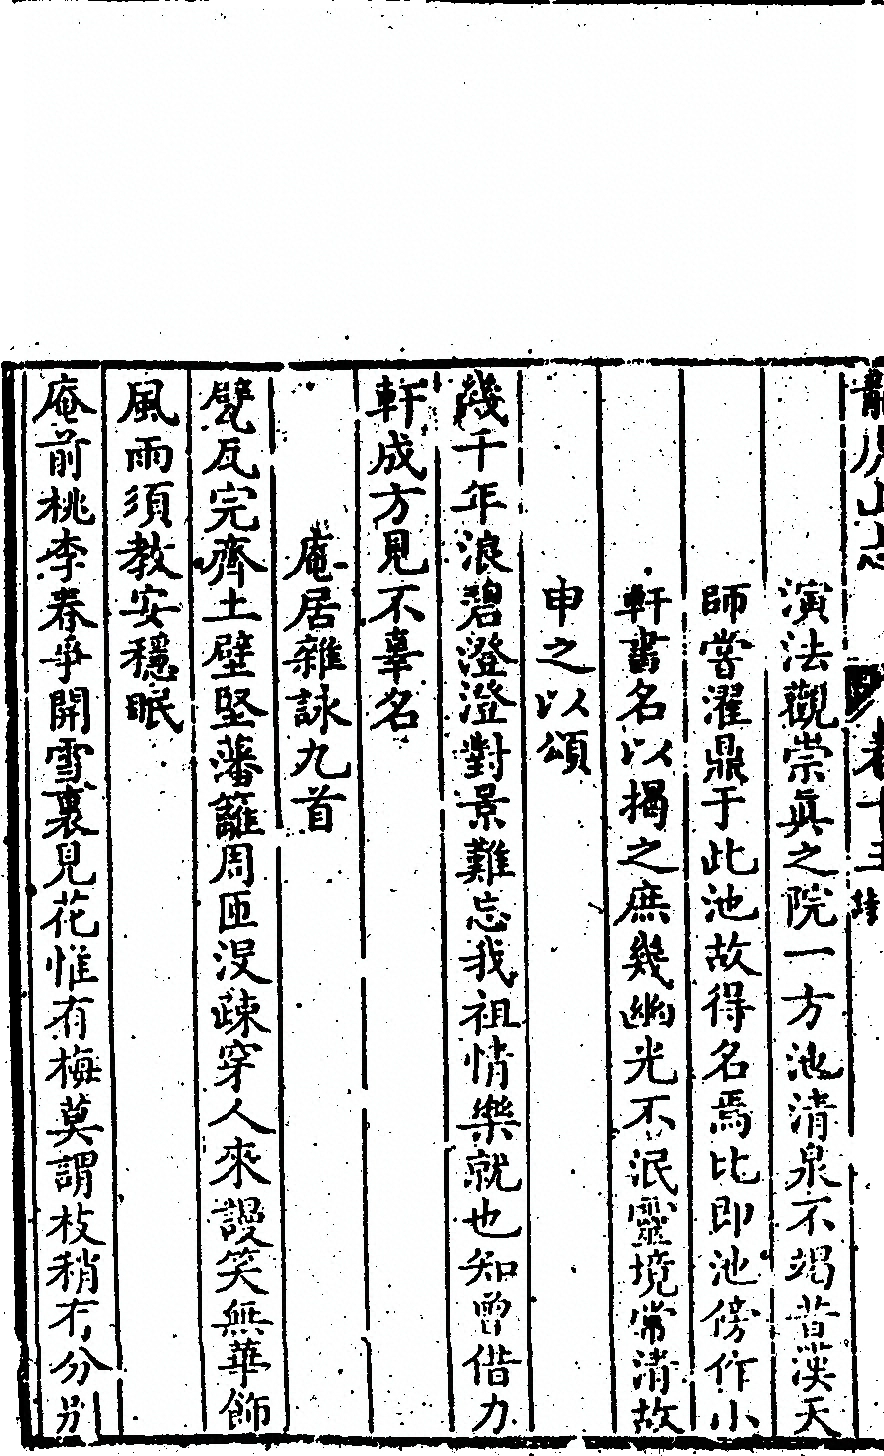 龍虎山志 卷十五
演法觀崇眞之院一方池清泉不竭昔漢天
師嘗濯鼎于此池故得名焉比即池傍作小
軒書名以揭之庶幾幽光不泯靈境常清故
申之以頌
幾千年浪碧澄澄對景難忘我祖情樂就也知曾借力
軒成方見不辜名
庵居雜詠九首
甓瓦完齊土壁堅藩籬周匝没疎穿人來謾笑無華飾
風雨須教安穩眠
庵前桃李春爭開雪裏見花惟有梅莫謂枝稍冇分别